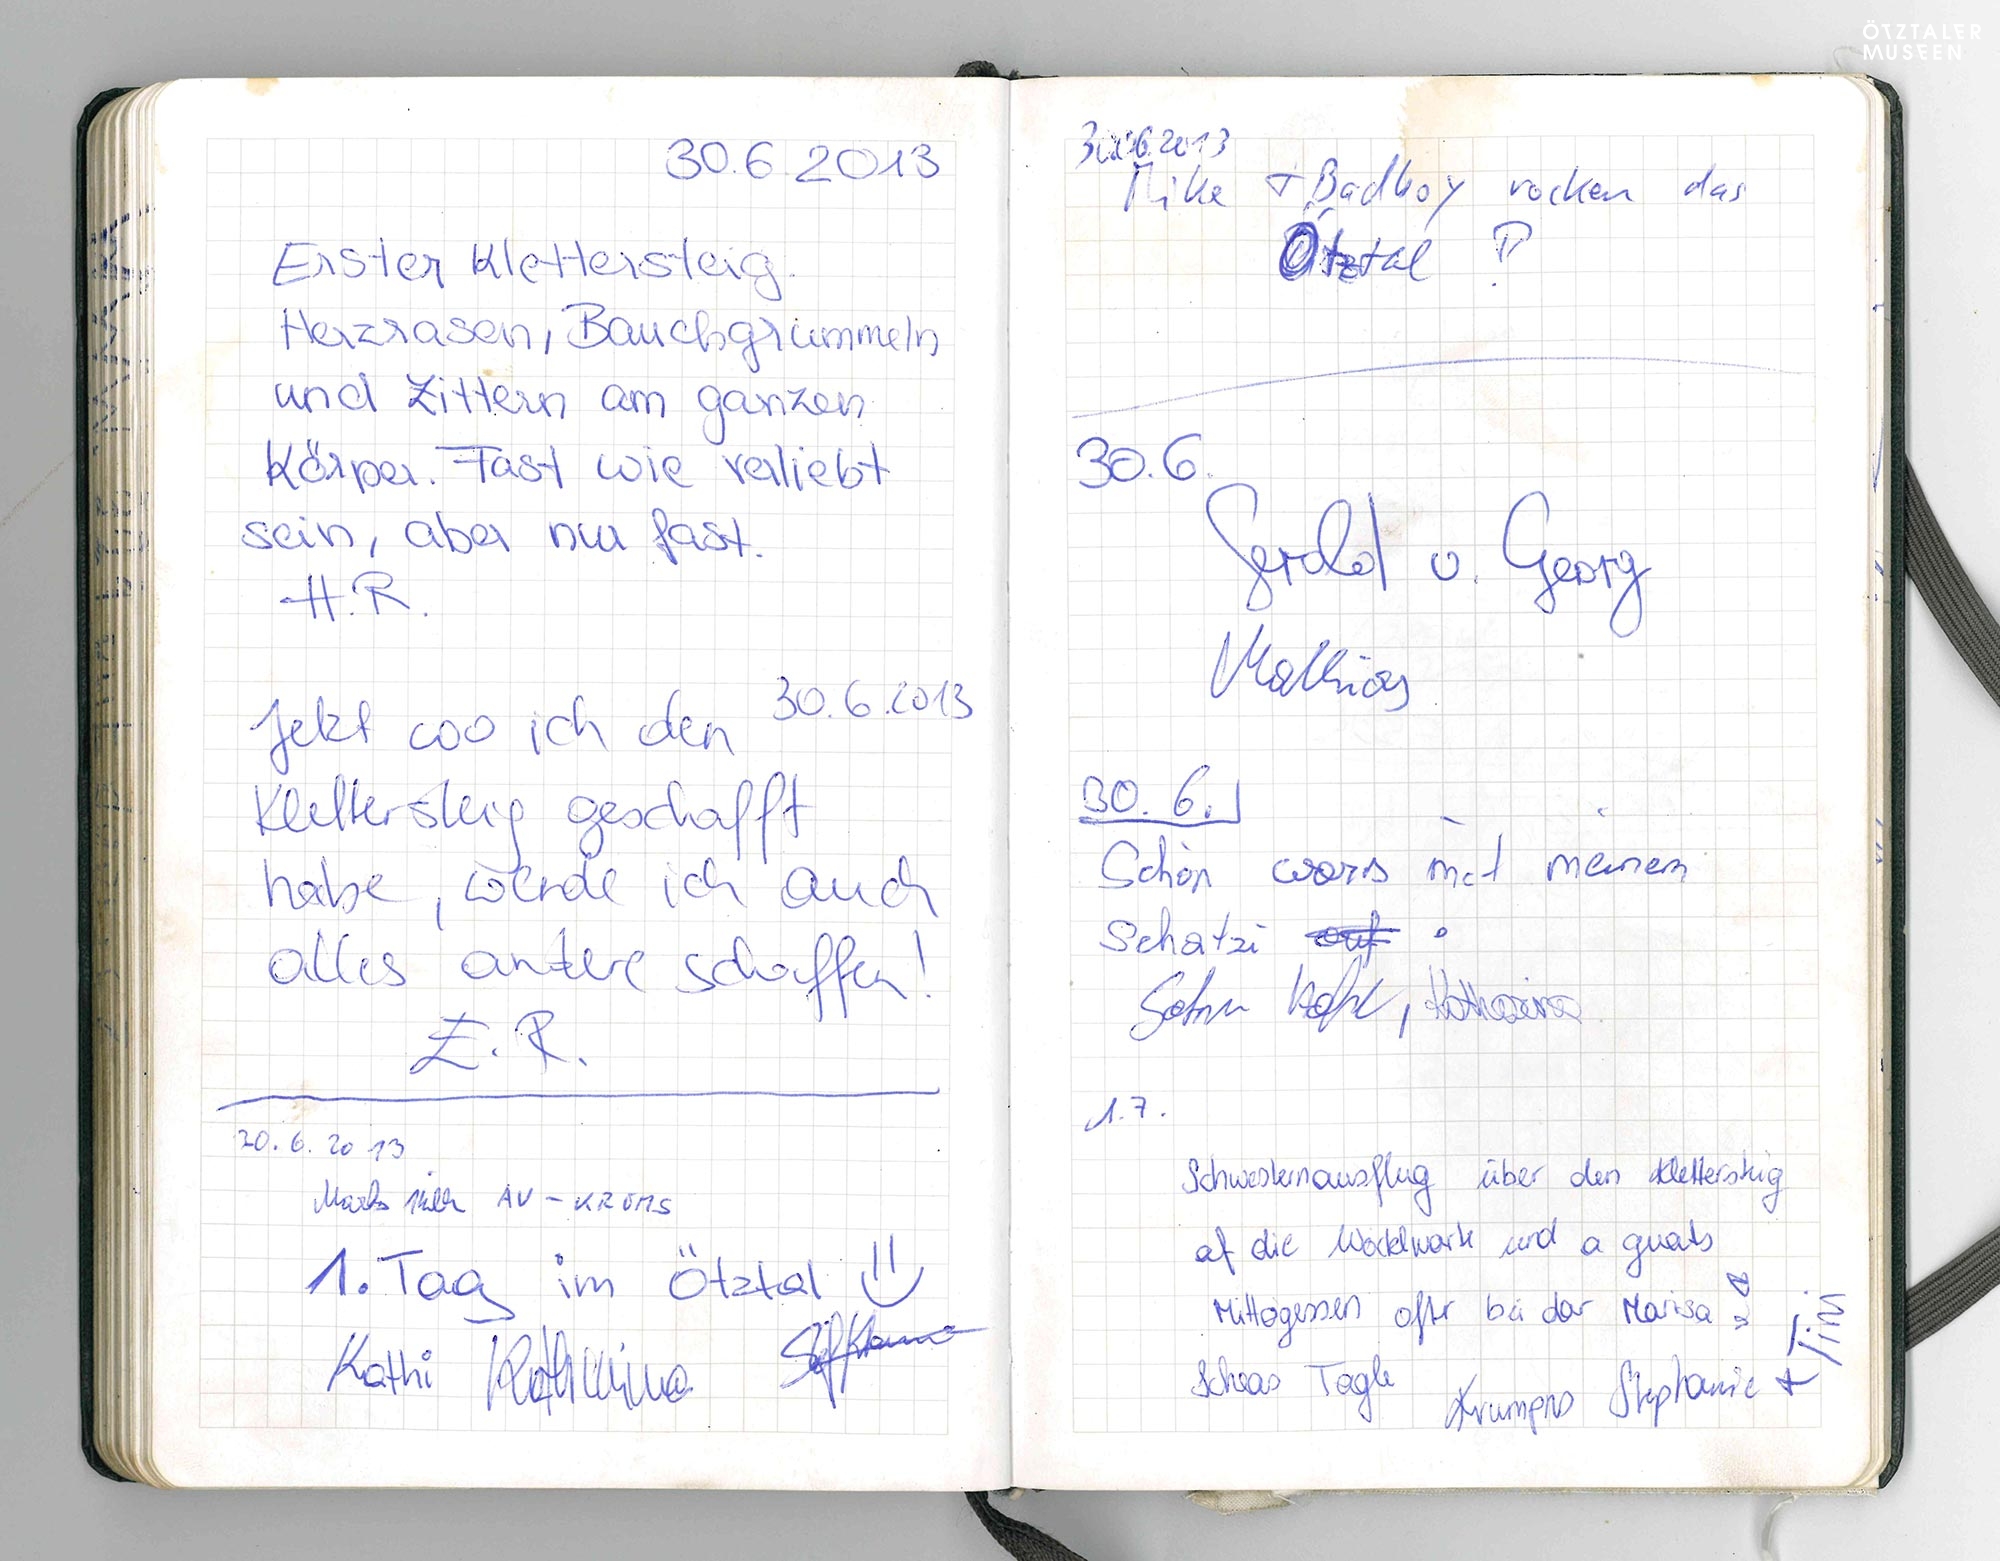 ÖTZTALER
MUSEEN
30.6.2013
Erster Klettersteig.
Herzrasen, Bauchgrummeln
und Zittern am ganzen
Körper. Fast wie verliebt
sein, aber nur fast.
H.R.
30.6.2013
Jetzt wo ich den
Klettersteig geschafft
habe, werde ich auch
alles andere schaffen!
E.R.
30.6.2013
AV-KREMS
1. Tag im Ötztal
Kathi
30.6.2013
Mike + Badboy rocken das
Ötztal
30.6.
Gerold u. Georg
Mathias
30.6.
Schön wars mit meinem
Schatzi
Katharina
1.7.
Schwesternausflug über den Klettersteig
af die und a guats
Mittogessen ofter bei dar Marisa
Scheas Tagle
Stephanie + Timi